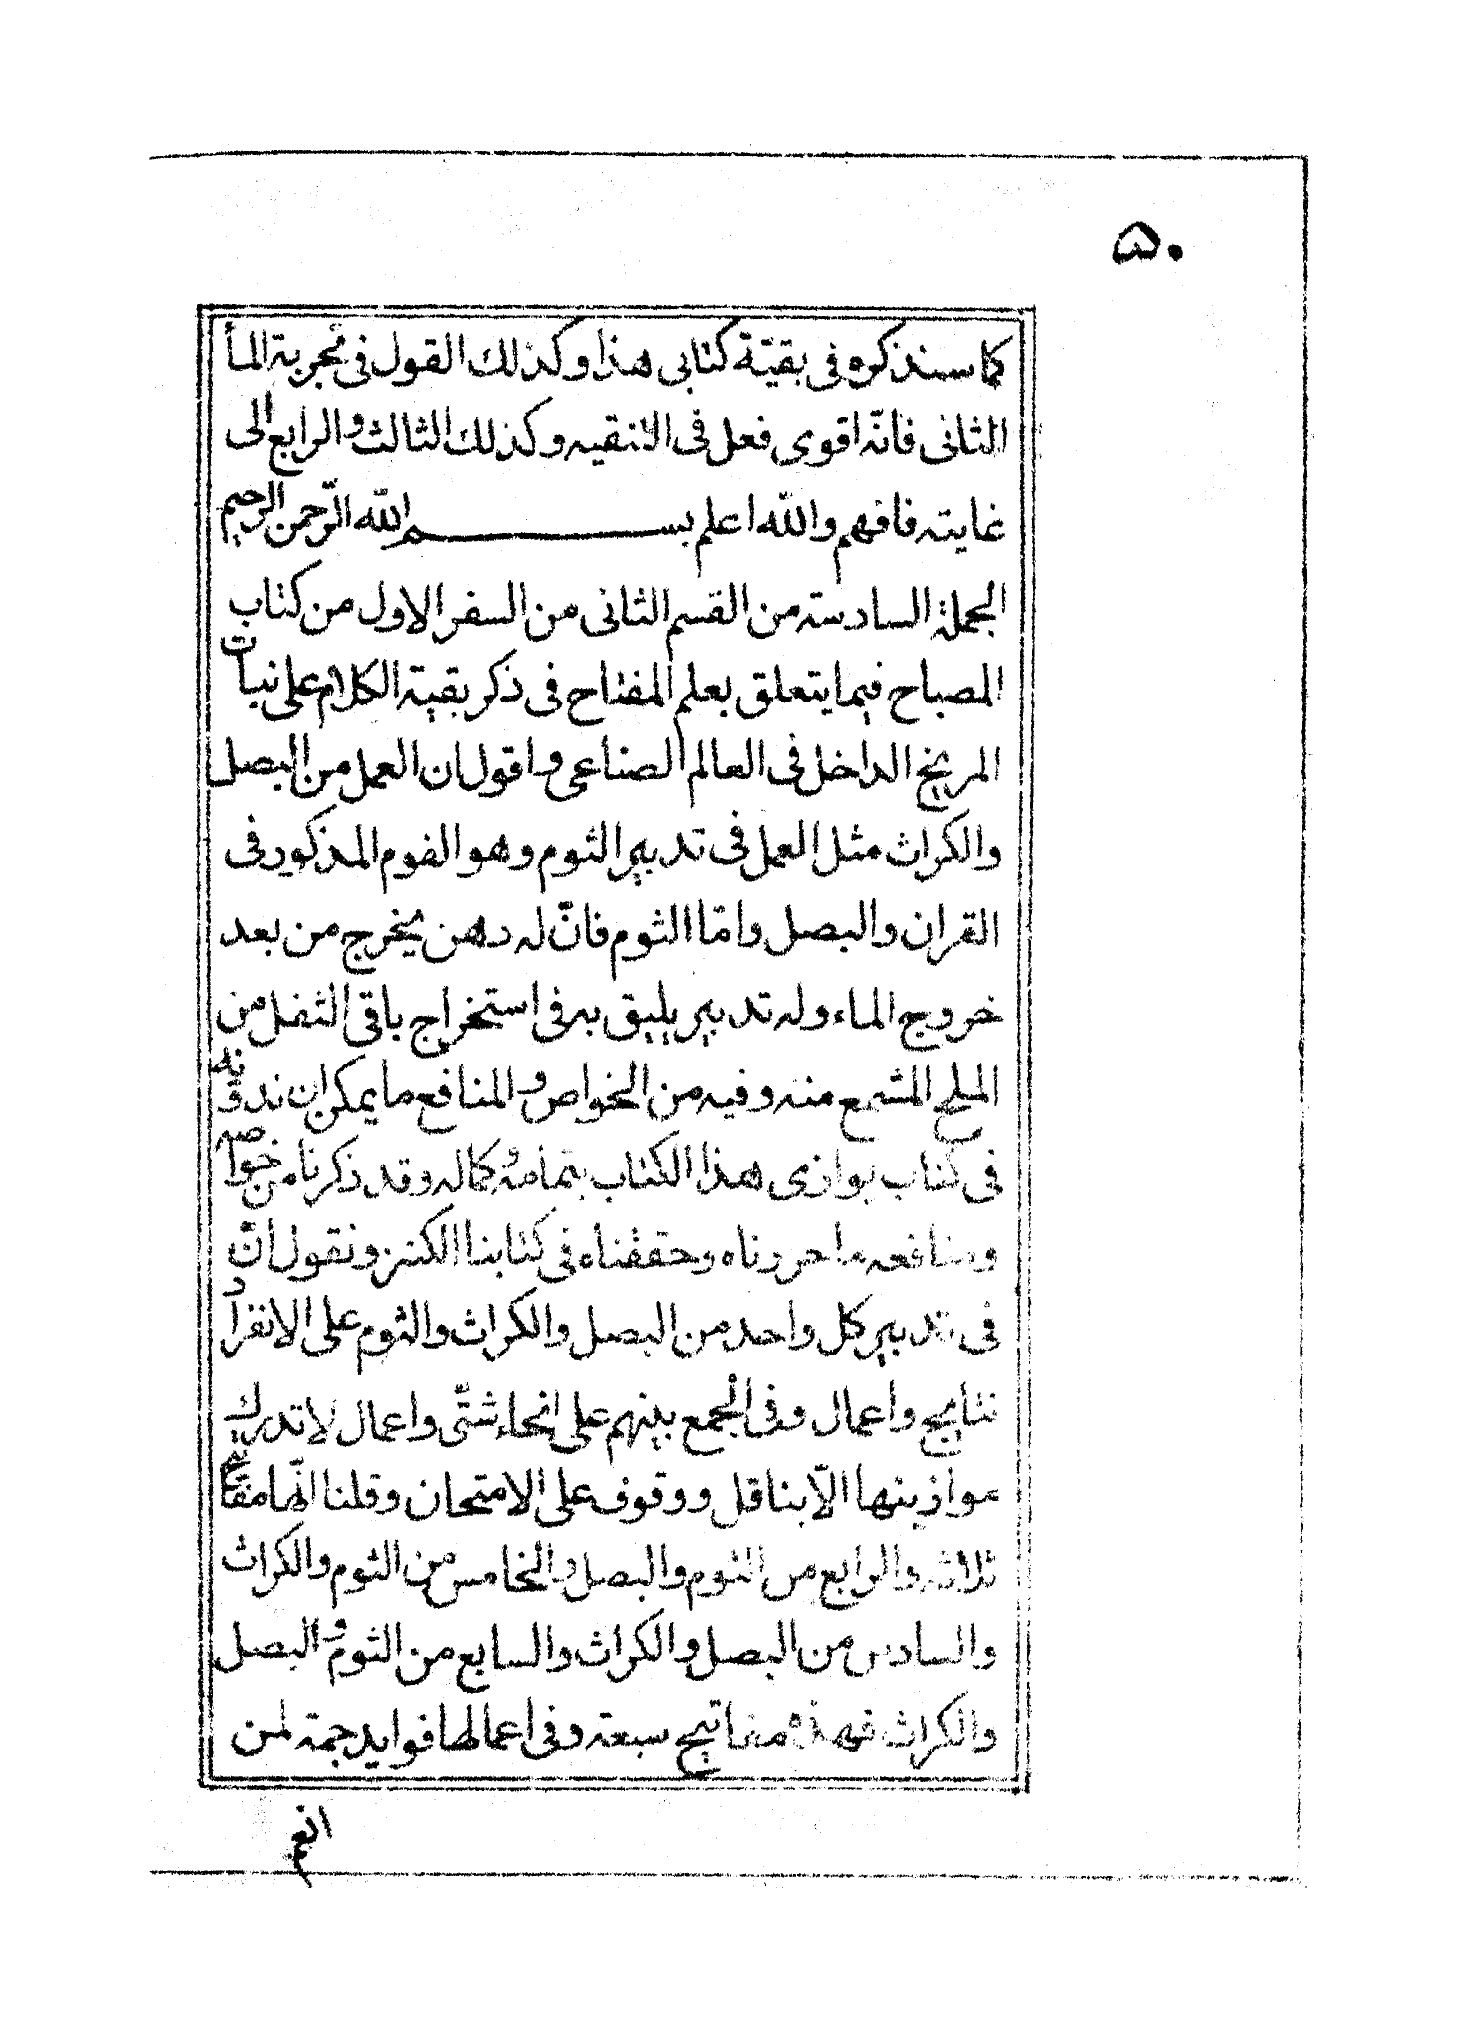 ۵۰
كما سنذكره فى بقيّة كتابى هذا وكذلك القول فى تجربة المأ
الثانى فانّه اقوى فعل فى الانقيه وكذلك الثالث والرابع الى
غايته فافهم والله اعلم بســـــــم الله الرّحمن الرحيم
الجملة السادسة من القسم الثانى من السفر الاول من كتاب
المصباح فيما يتعلق بعلم المفتاح فى ذكر بقية الكلام على نبات
المريخ الداخل فى العالم الصناعى واقول ان العمل من البصل
والكراث مثل العمل فى تدبير الثوم وهو الفوم المذكور فى
القران والبصل وامّا الثوم فانّ له دهن يخرج من بعد
خروج الماء وله تدبير يليق به فى استخراج باقى الثفل من
الملح المشمع منه وفيه من الخواص والمنافع ما يمكن ان ندوّنه
فى كتاب يوازى هذا الكتاب بتمامه وكماله وقد ذكرنا من خواصه
ومنافعه ما حررناه وحققناه فى كتابنا الكنز ونقول انّ
فى تدبير كل واحد من البصل والكراث والثوم على الانفراد
نتايج واعمال وفى الجمع بينهم على انحاء شتّى واعمال لا تدرك
موازينها الّا بناقل ووقوف على الامتحان وقلنا انّها مفاتيح
ثلاثة والرابع من الثوم والبصل والخامس من الثوم والكراث
والسادس من البصل والكراث والسابع من الثوم والبصل
والكراث فهذه مفاتيح سبعة وفى اعمالها فوايد جمة لمن
انعم